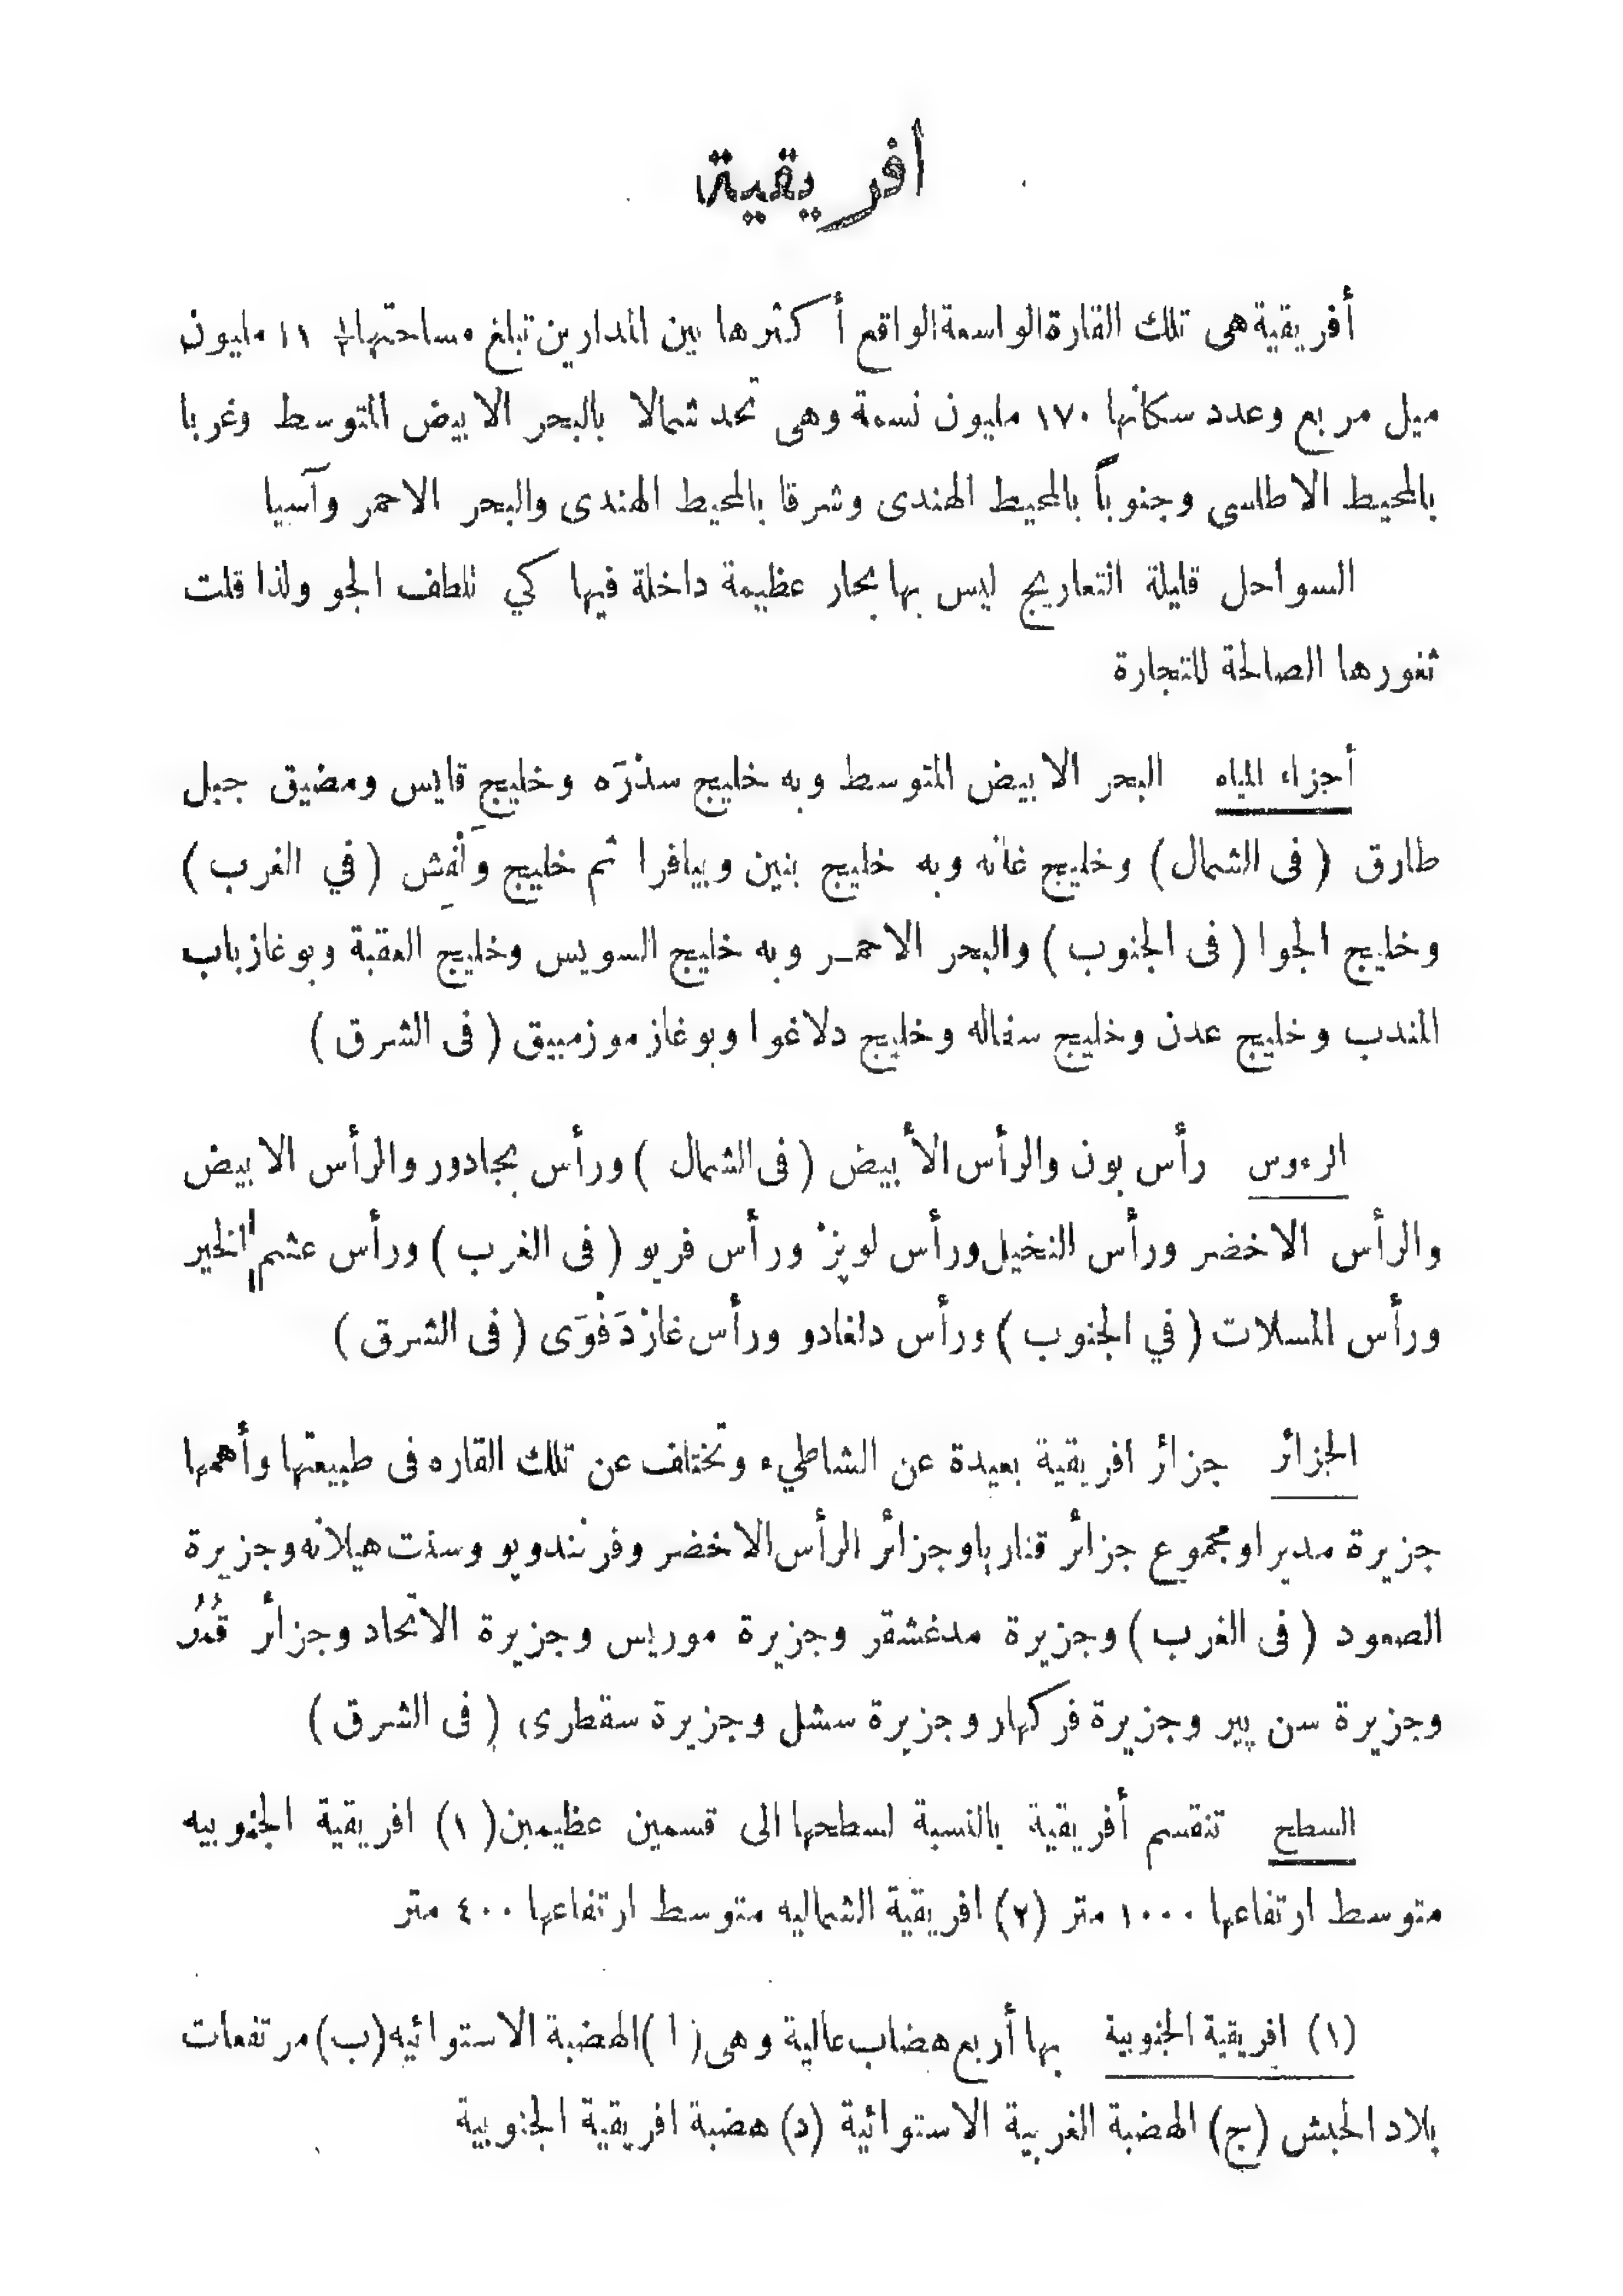 افريقية
أفريقية هى تلك القارة الواسعة الواقع أكثرها بين المدارين تبلغ مساحتها ½ ١١ مليون
ميل مربع وعدد سكانها ١٧٠ مليون نسمة وهى تحد شمالا بالبحر الابيض المتوسط وغربا
بالمحيط الاطلسى وجنوباً بالمحيط الهندى وشرقا بالمحيط الهندى والبحر الاحمر وآسيا
السواحل قليلة التعاريج ليس بها بحار عظيمة داخلة فيها كي تلطف الجو ولذا قلت
ثغورها الصالحة للتجارة
أجزاء المياه البحر الابيض المتوسط وبه خليج سدْرَه وخليج قابس ومضيق جبل
طارق ( فى الشمال ) وخليج غانه وبه خليج بنين وبيافرا ثم خليج وَلْفِش ( في الغرب )
وخليج الجوا ( فى الجنوب ) والبحر الاحمر وبه خليج السويس وخليج العقبة وبوغاز باب
المندب وخليج عدن وخليج سفاله وخليج دلاغوا وبوغاز موزمبيق ( فى الشرق )
الرءوس رأس بون والرأس الأبيض ( فى الشمال ) ورأس بجادور والرأس الابيض
والرأس الاخضر ورأس النخيل ورأس لوبزْ ورأس فريو ( فى الغرب ) ورأس عشم الخير
ورأس المسلات ( في الجنوب ) ورأس دلغادو ورأس غازدَفْوَى ( فى الشرق )
الجزائر جزائر افريقية بعيدة عن الشاطيء وتختلف عن تلك القاره فى طبيعتها وأهمها
جزيرة مديرا ومجموع جزائر قناريا وجزائر الرأس الاخضر وفرنندوبو وسنت هيلانه وجزيرة
الصعود ( فى الغرب ) وجزيرة مدغشقر وجزيرة موريس وجزيرة الاتحاد وجزائر قُمُر
وجزيرة سن بير وجزيرة فركهار وجزيرة سشل وجزيرة سقطرى ( فى الشرق )
السطح تنقسم أفريقية بالنسبة لسطحها الى قسمين عظيمين (١) افريقية الجنوبيه
متوسط ارتفاعها ١٠٠٠ متر (٢) افريقية الشماليه متوسط ارتفاعها ٤٠٠ متر
(١) افريقية الجنوبية بها أربع هضاب عالية وهى ( ا ) الهضبة الاستوائيه (ب) مرتفعات
بلاد الحبش (ج) الهضبة الغربية الاستوائية (د) هضبة افريقية الجنوبية